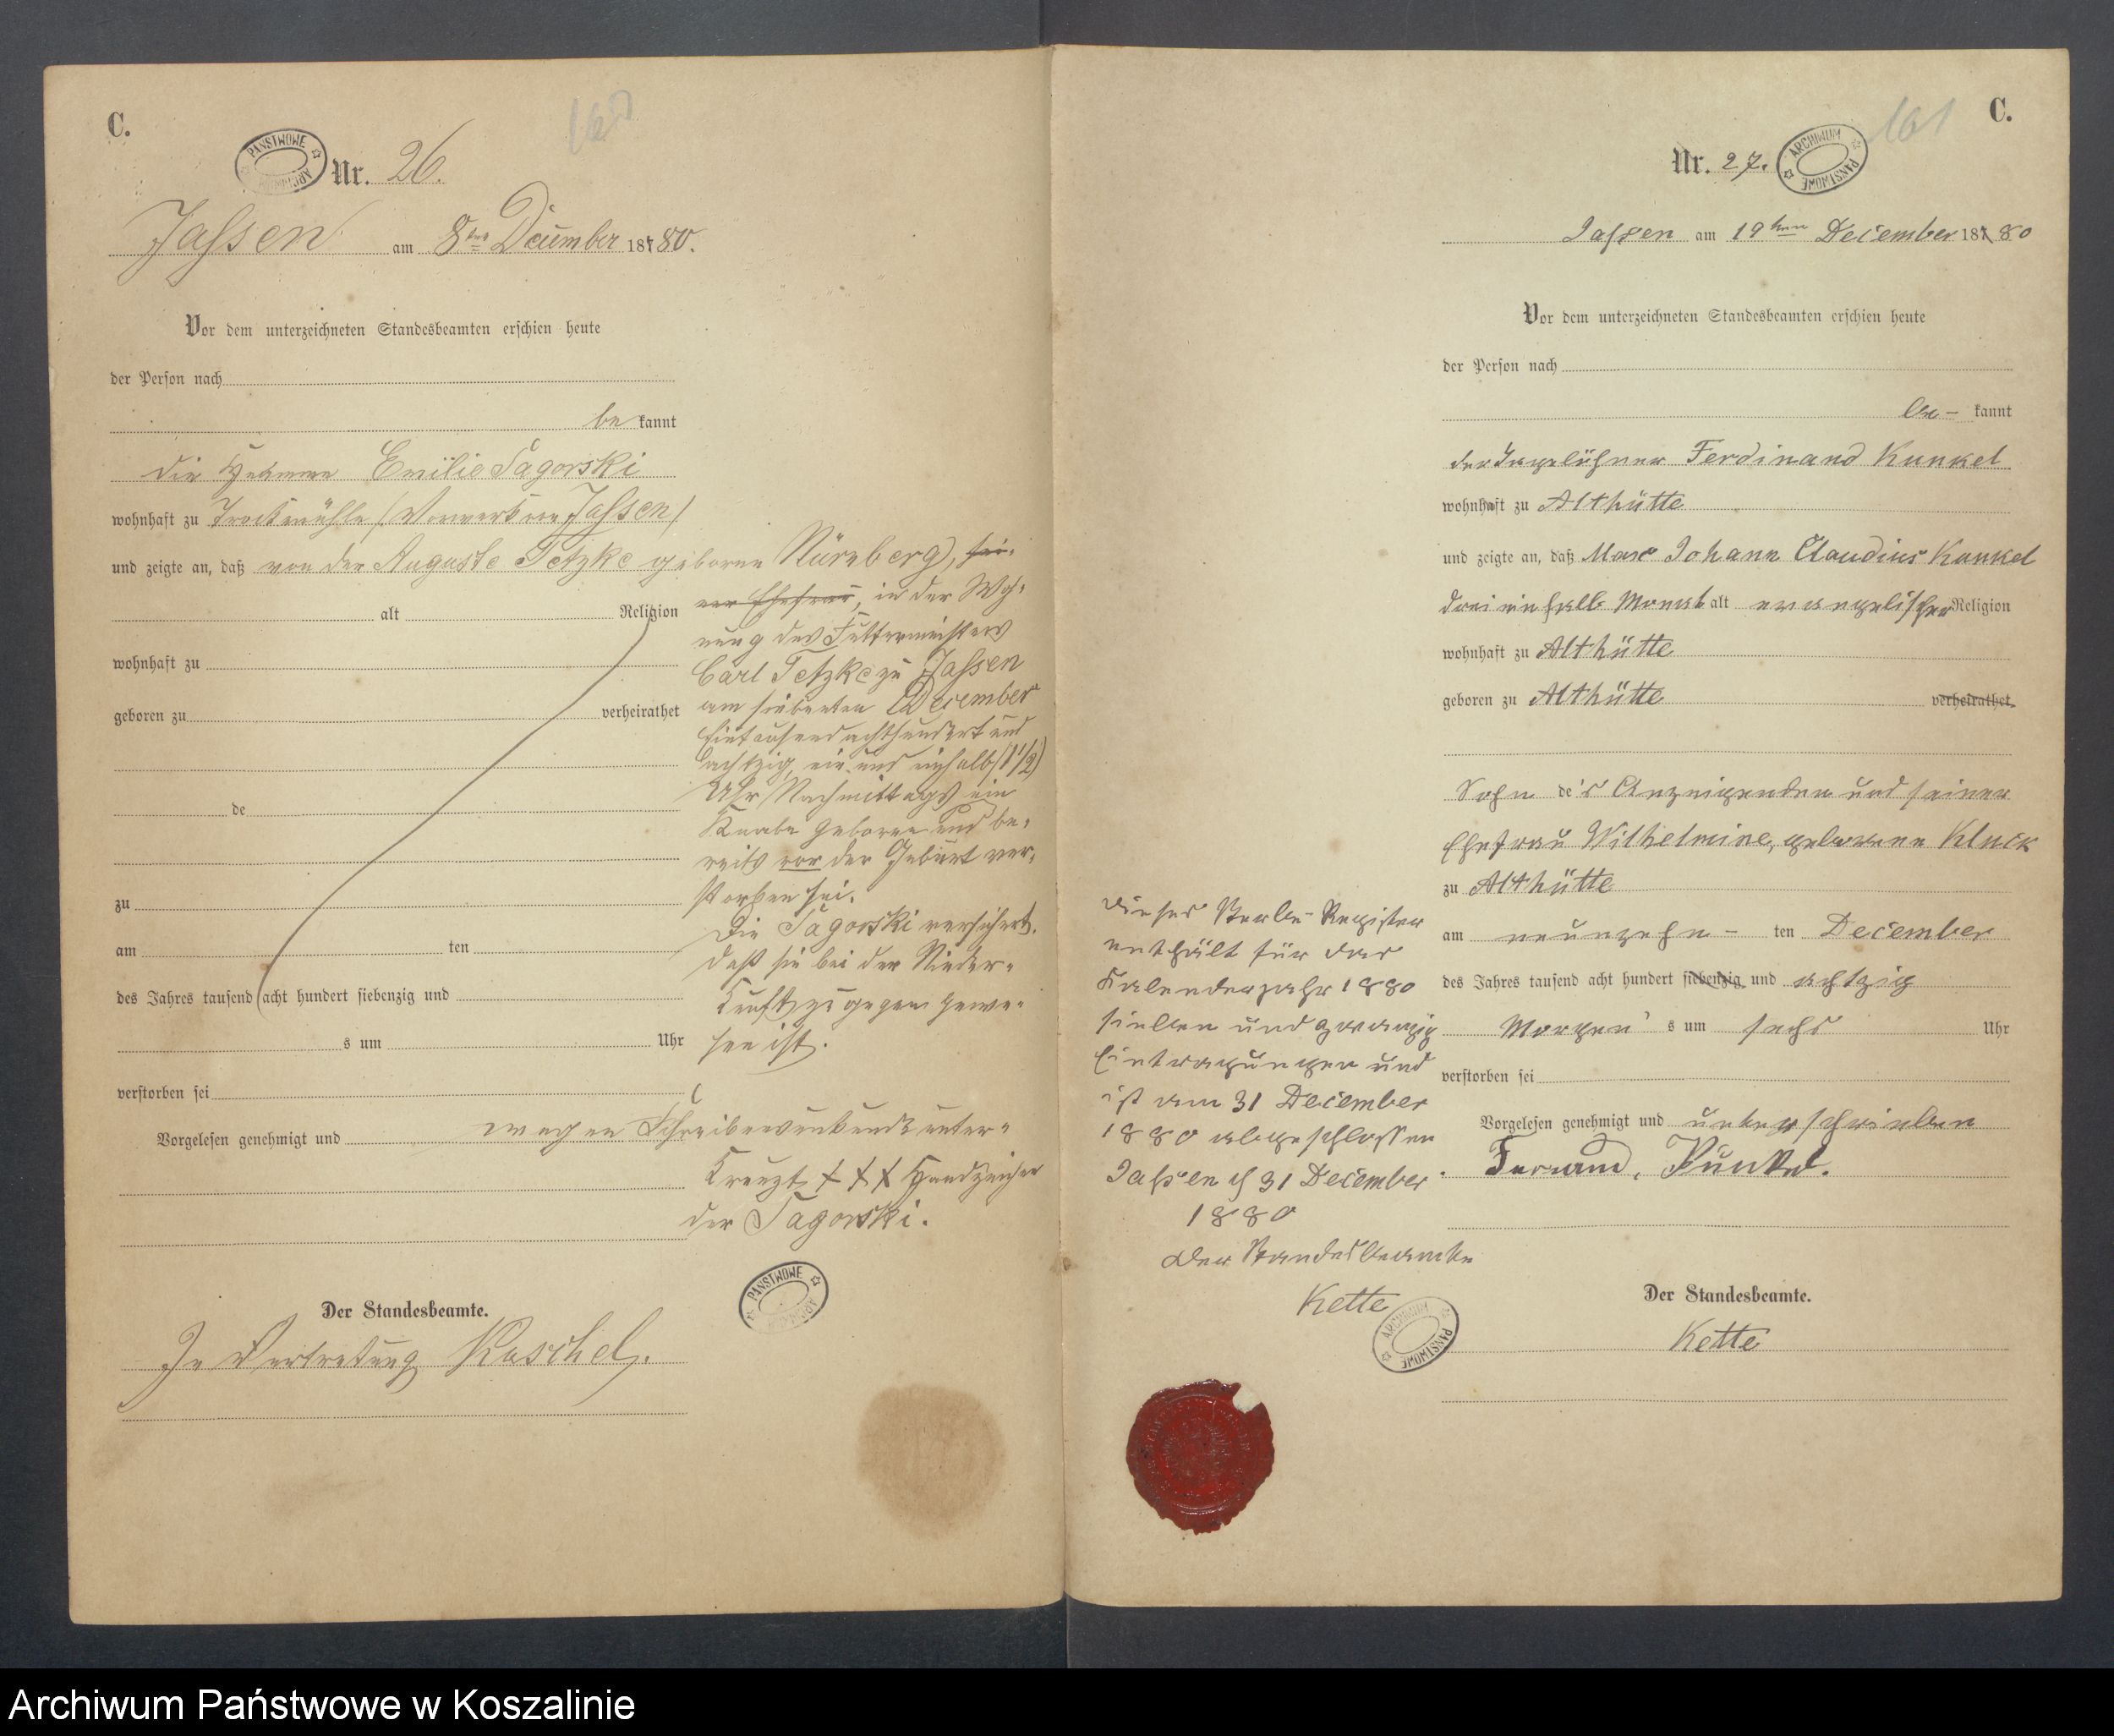 C.
160
PAŃSTWOWE ARCHIWUM
Nr. 26.
Jassen am 8ten December 18780.
Vor dem unterzeichneten Standesbeamten erschien heute
der Person nach
be kannt
die Hebamme Emilie Sagorski
wohnhaft zu (Vorwerk von Jassen)
und zeigte an, daß von der Auguste Tetzke geborne Nürnberg, sei-
ner Ehefrau, in der Woh-
nung des Futtermeisters
Carl Tetzke zu Jassen
am siebenten December
Eintausend achthundert und
achtzig, ein und einhalb (1 1/2)
Uhr Nachmittags ein
Knabe geboren und be-
reits vor der Geburt ver-
storben sei.
Die Sagorski versichert,
daß sie bei der Nieder-
kunft zugegen gewe-
sen ist.
alt Religion
wohnhaft zu
geboren zu verheirathet
de
zu
am ten
des Jahres tausend acht hundert siebenzig und
s um Uhr
verstorben sei
Vorgelesen genehmigt und wegen unter-
kreuzt + + + Handzeichen
der Sagorski.
PAŃSTWOWE ARCHIWUM
Der Standesbeamte.
In Vertretung Raschel.
C.
161
ARCHIWUM PAŃSTWOWE
Nr. 27.
Jassen am 19ten December 18780
Vor dem unterzeichneten Standesbeamten erschien heute
der Person nach
be- kannt
der Tagelöhner Ferdinand Kunkel
wohnhaft zu Althütte
und zeigte an, daß Max Johann Claudius Kunkel
drei ein halb Monat alt evangelischer Religion
wohnhaft zu Althütte
geboren zu Althütte verheirathet
Sohn des Anzeigenden und seiner
Ehefrau Wilhelmine, geborene Kluck
zu Althütte
am neunzehn- ten December
des Jahres tausend acht hundert siebenzig und achtzig
Morgens um sechs Uhr
verstorben sei
Vorgelesen genehmigt und unterschrieben
Kunkel.
Der Standesbeamte.
Kette
Dieses Sterbe-Register
enthält für das
Kalenderjahr 1880
sieben und zwanzig
Eintragungen und
ist am 31 December
1880 abgeschlossen
Jassen d 31 December
1880
Der Standesbeamte
Kette
ARCHIWUM PAŃSTWOWE
Archiwum Państwowe w Koszalinie